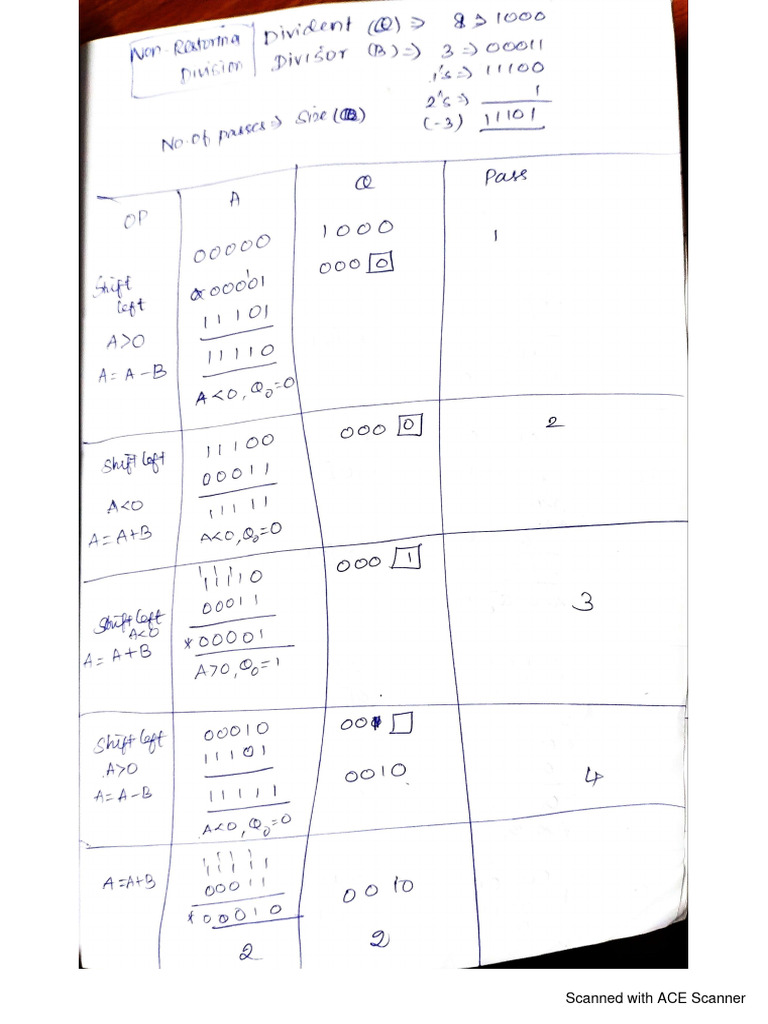 Non-Restoring Division
Divident (Q) ⇒ 8 ⇒ 1000
Divisor (B) ⇒ 3 ⇒ 00011
1's ⇒ 11100
2's ⇒ 1
(-3) 11101
No. of passes ⇒ Size (Q)
OP A Q Pass
00000 1000 1
Shift left 00001 000 0
A>0 11101
A = A - B 11110
A<0, Q0=0
Shift left 11100 000 0 2
A<0 00011
A = A+B 11111
A<0, Q0=0
Shift left 11110 000 1 3
A<0 00011
A = A+B *00001
A>0, Q0=1
Shift left 00010 001
A>0 11101 0010 4
A = A-B 11111
A<0, Q0=0
A=A+B 11111
00011 0010
*00010
2 2
Scanned with ACE Scanner